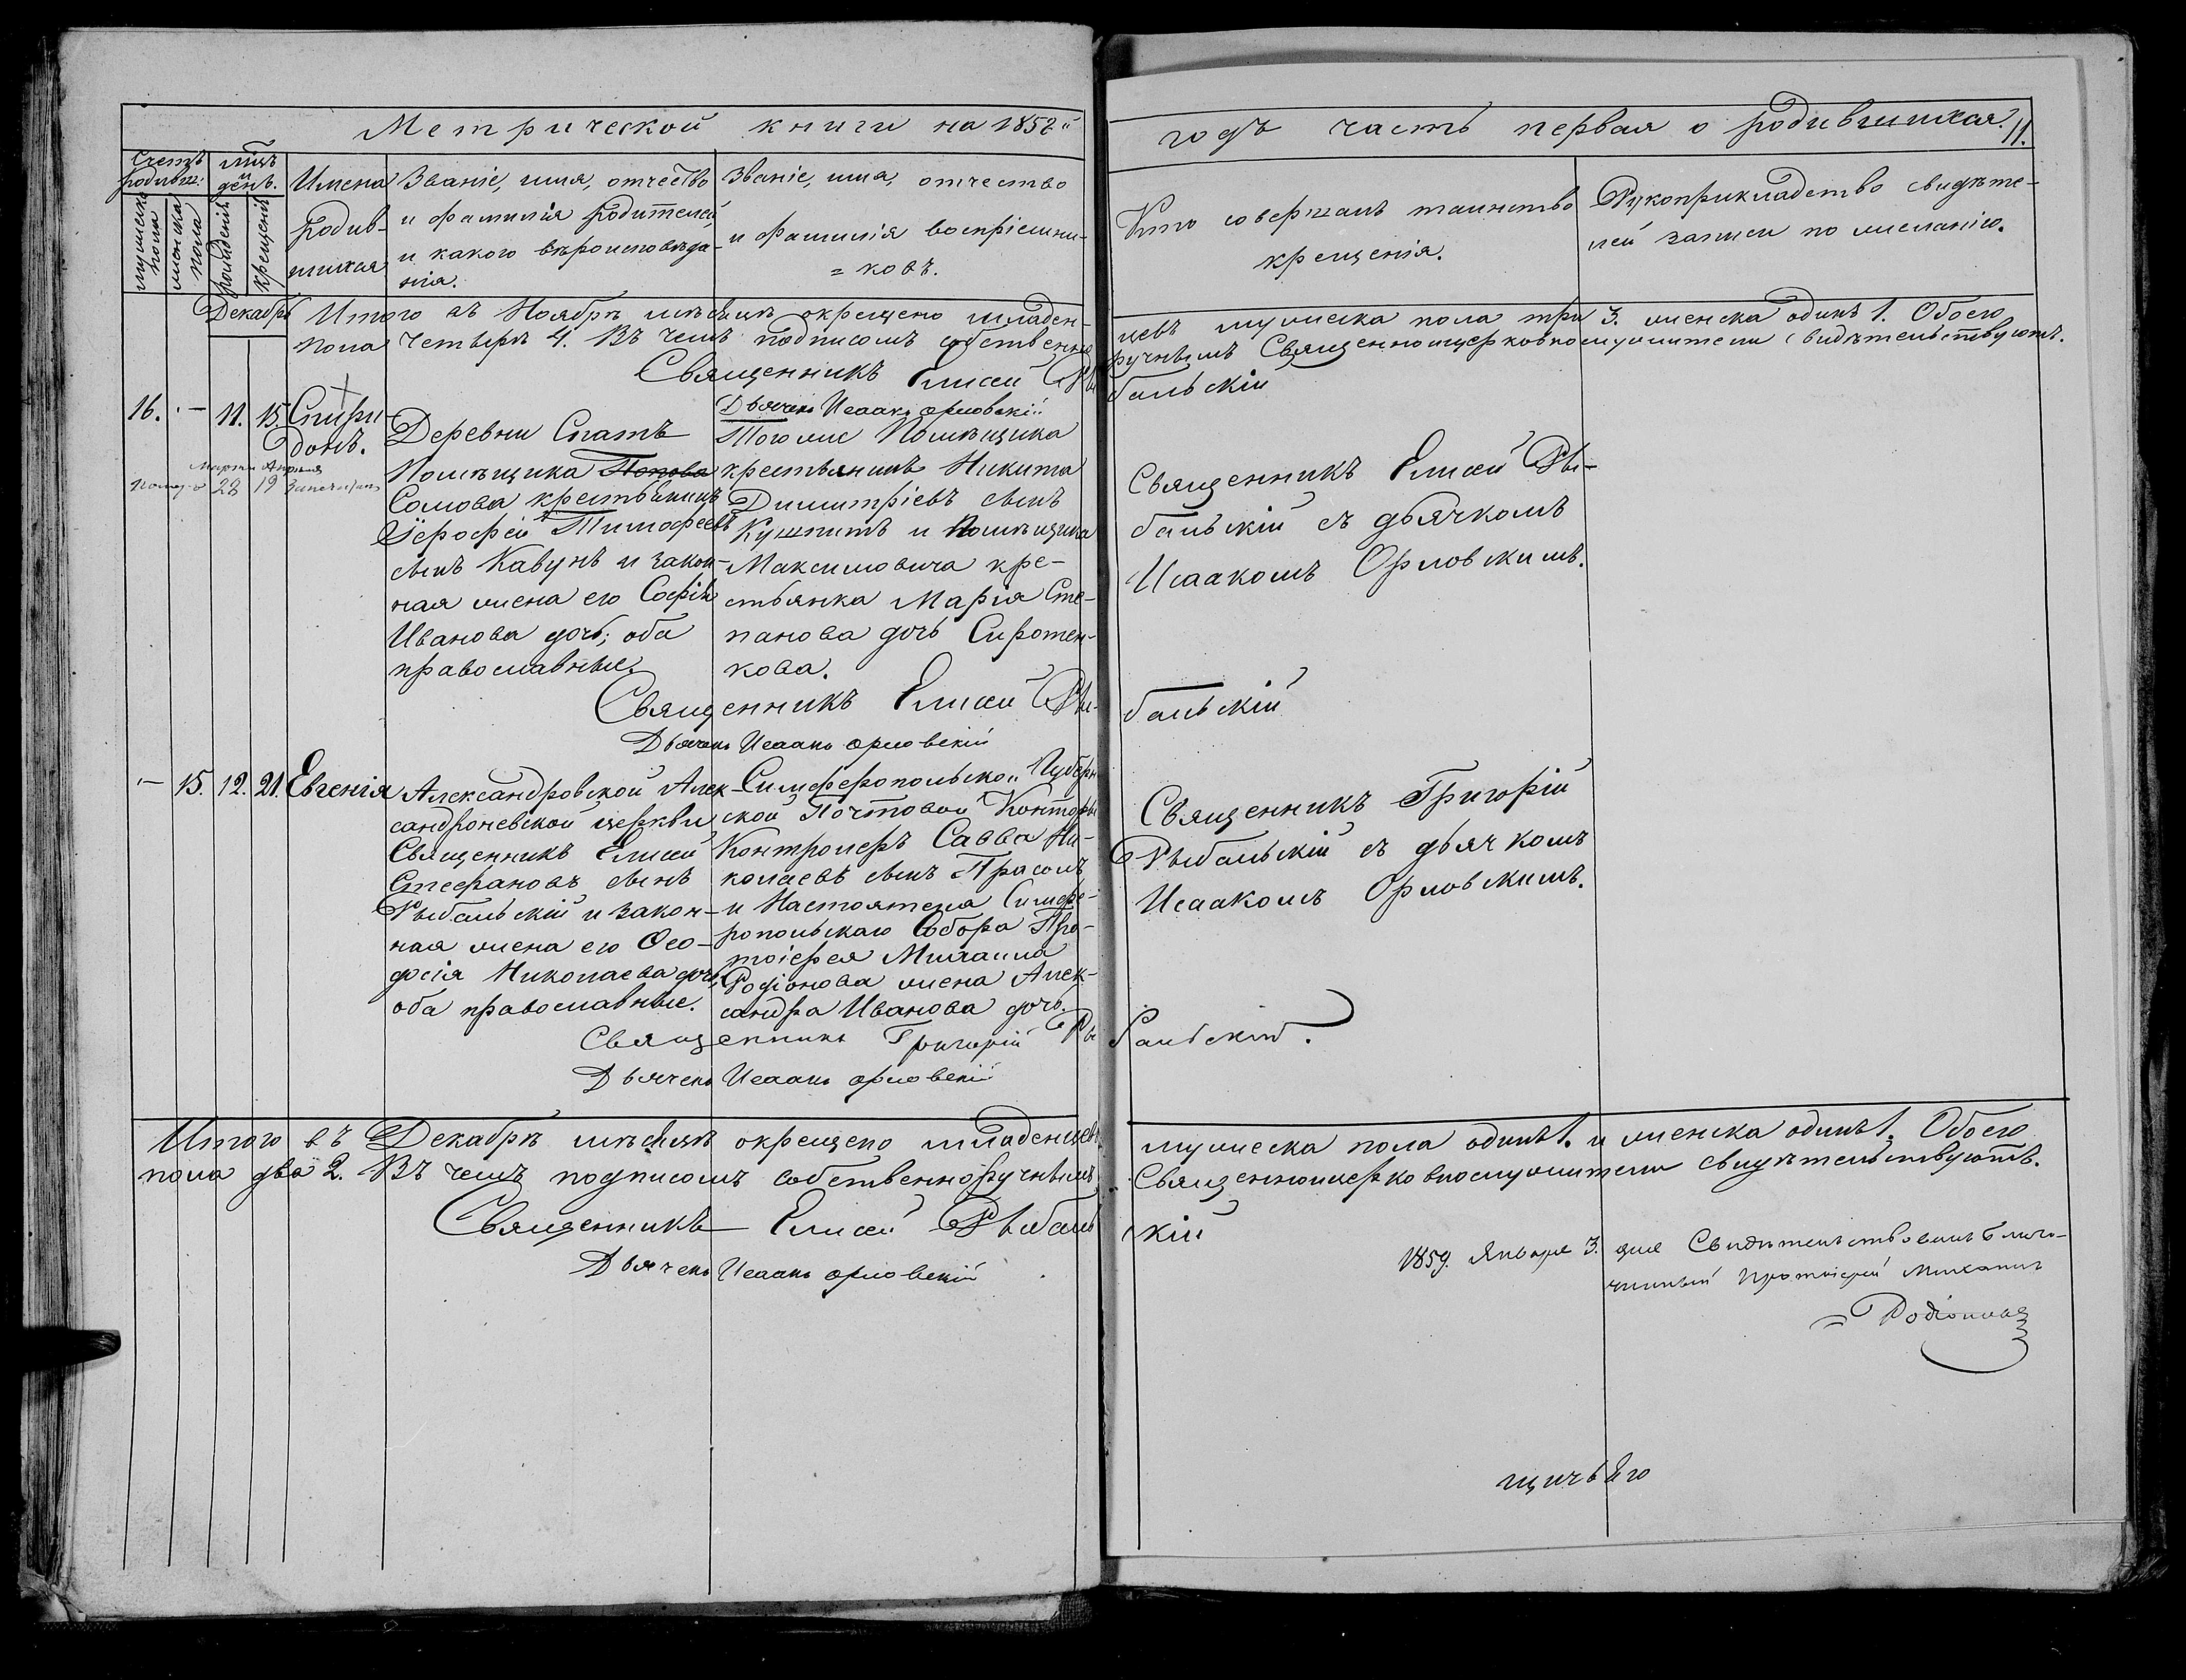 Метрической книги на 1858й
годъ часть первая о родившихся.
11.
Счетъ родивш:
мужеска пола
женска пола
Мѣцъ и день.
рожденія
крещенія
Имена
родив-
шихся
Званіе, имя, отчество
и фамилія родителей,
и какого вѣроисповѣда-
нія.
Званіе, имя, отчество
и фамилія воспріемни-
=ковъ.
Кто совершалъ таинство
крещенія.
Рукоприкладство свидѣте-
лей записи по желанію.
Декабрь
Итого въ Ноябрѣ мѣсяцѣ окрещено младен-
цевъ мужеска пола три 3. женска одинъ 1. Обоего
пола четыре 4. Въ чемъ подписомъ собственно
ручнымъ Священноцерковнослужители свидѣтельствуютъ.
Священникъ Елисей Ры
бальскій
Дьячекъ Исаакъ Орловскій
16. - 11. 15. Спири
донъ.
Марта Апрѣля
28 19
Деревни Спатъ
Помѣщика Попова
Сомова крестьянинъ
Іерофей Тимофеевъ
сынъ Кавунъ и закон-
ная жена его Софія
Иванова дочь; оба
православные.
Тогоже Помѣщика
крестьянинъ Никита
Димитріевъ сынъ
и помѣщика
Максимовича кре-
стьянка Марія Сте-
панова дочь Сиротен-
кова.
Священникъ Елисей Ры-
бальскій съ дьячкомъ
Исаакомъ Орловскимъ.
Священникъ Елисей Ры-
бальскій
Дьячекъ Исаакъ Орловскій
- 15. 12. 21. Евгенія
Александровской Алек-
сандроневской церкви
Священникъ Елисей
Стефановъ сынъ
Рыбальскій и закон-
ная жена его Ѳео-
досія Николаева дочь,
оба православные.
Симферопольской Губерн
ской Почтовой Конторы
Контролеръ Савва Ни-
колаевъ сынъ Прасолъ
и Настоятеля Симфе-
ропольскаго Собора Про-
тоіерея Михаила
Родіонова жена Алек-
сандра Иванова дочь.
Священникъ Григорій
Рыбальскій съ дьячкомъ
Исаакомъ Орловскимъ.
Священникъ Григорій Ры
бальскій.
Дьячекъ Исаакъ Орловскій
Итого въ Декабрѣ мѣсяцѣ окрещено младенцевъ
мужеска пола одинъ 1. и женска одинъ 1. Обоего
пола два 2. Въ чемъ подписомъ собственноручнымъ
Священноцерковнослужители свидѣтельствуютъ.
Священникъ Елисей Рыбальс
кій
Дьячекъ Исаакъ Орловскій
1859. Января 3. дня Свидѣтельствовалъ Благо-
чинный Протоіерей Михаилъ
Родіоновъ